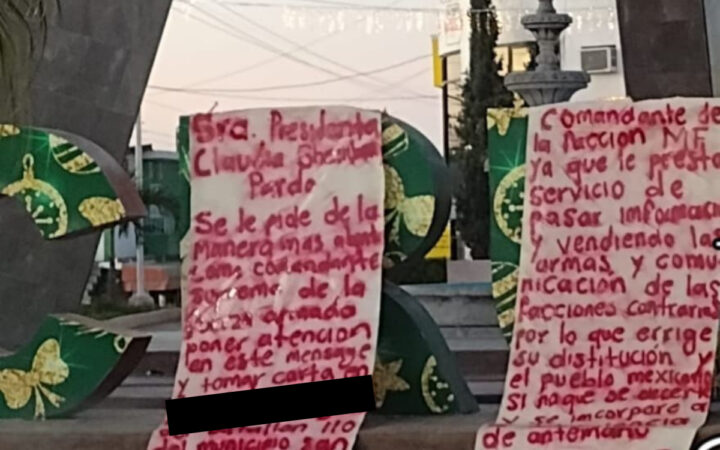 Sra. Presidenta
Claudia Sheinbaum
Pardo
Se le pide de la
manera mas atenta
como comandante
suprema de la
armado
poner atencion
en este mensage
y tomar carta en
del municipio san
Comandante de
la faccion MF
ya que le presto
servicio de
pasar informacion
y vendiendo las
armas y comu
nicación de las
facciones contrarias
por lo que errige
su distitución y
el pueblo mexicano
si
y se incorpore a
de antemano